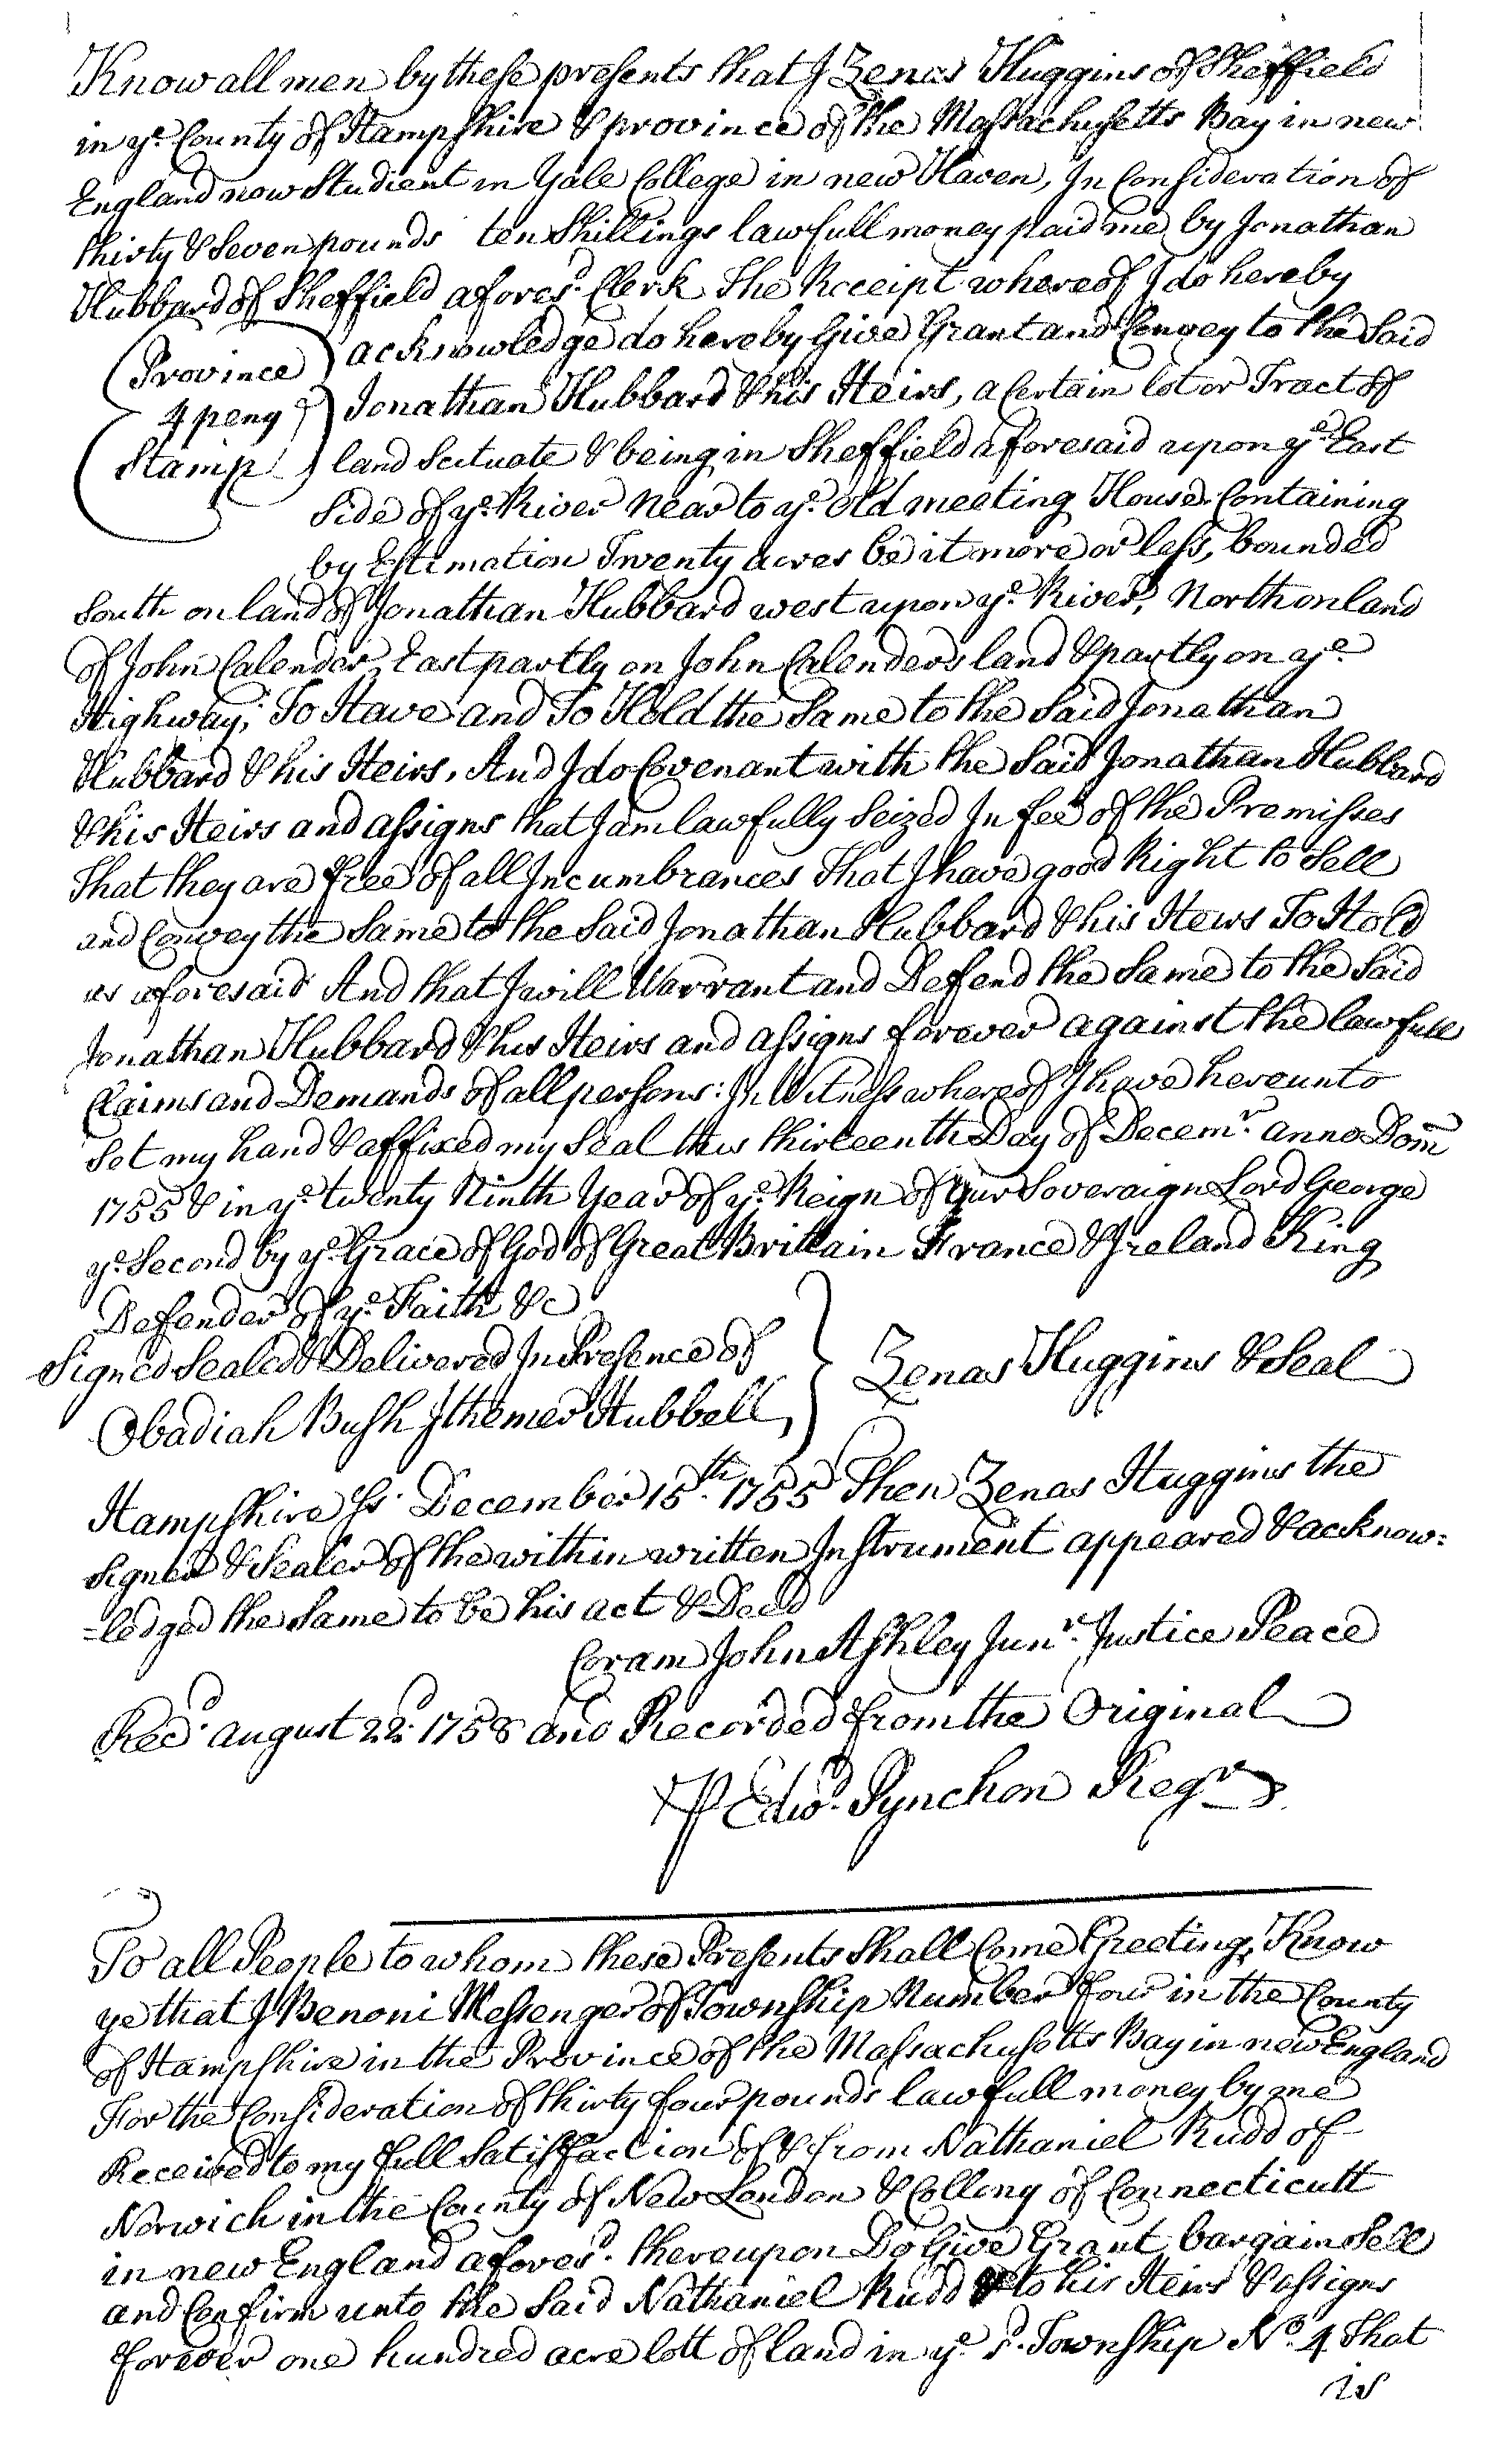 Know all men by these presents that I Zenas Huggins of Sheffield
in ye. County of Hampshire & province of the Massachusetts Bay in new
England now Studient in Yale College in new Haven, In Consideration of
thirty & Seven pounds ten Shillings lawfull money paid me by Jonathan
Hubbard of Sheffield afores.d Clerk The Receipt whereof I do hereby
acknowledge do hereby Give Grant and Convey to the Said
(Province
4 peny
Stamp)
Jonathan Hubbard & his Heirs, a Certain lot or Tract of
land Scituate & being in Sheffield aforesaid upon ye. East
Side of ye. River near to ye. old meeting House Containing
by Estimation Twenty acres be it more or less, bounded
South on land of Jonathan Hubbard west upon ye. River, North on land
of John Calender, East partly on John Calenders land & partly on ye.
Highway; To Have and To Hold the Same to the Said Jonathan
Hubbard & his Heirs. And I do Covenant with the Said Jonathan Hubbard
& his Heirs and assigns that I am lawfully Seized In fee of the Premisses
That they are free of all Incumbrances That I have good Right to Sell
and Convey the Same to the Said Jonathan Hubbard & his Heirs To Hold
as aforesaid And that I will Warrant and Defend the Same to the Said
Jonathan Hubbard & his Heirs and assigns forever against the lawfull
Claims and Demands of all persons: In Witness whereof I have hereunto
Set my hand & affixed my Seal this thirteenth Day of Decem.r anno Dom
1755 & in ye. twenty Ninth Year of ye. Reign of our Soveraign Lord George
ye. Second by ye. Grace of God of Great Brittain France & Ireland King
Defender of ye. Faith &c
Signed Sealed & Delivered In Presence of
Obadiah Bush Ithemer Hubbell
Zenas Huggins & Seal
Hampshire Ss. December 15.th 1755 Then Zenas Huggins the
Signer & Sealer of the within written Instrument appeared & acknow=
=ledged the Same to be his act & Deed
Coram John Ashley Jun.r Justice Peace
Rec.d august 22.d 1758 and Recorded from the Original
P Edw.d Pynchon Reg.r
To all People to whom these Presents Shall Come Greeting, Know
ye that I Benoni Messenger of Township Number four in the County
of Hampshire in the Province of the Massachusetts Bay in new England
For the Consideration of thirty four pounds lawfull money by me
Received to my full Satisffaction of & from Nathaniel Rudd of
Norwich in the County of New London & Collony of Connecticutt
in new England afores.d thereupon Do Give Grant bargain Sell
and Confirm unto the Said Nathaniel Rudd & to his Heirs & assigns
forever one hundred acre lott of land in ye. s.d Township No. 4 That
is